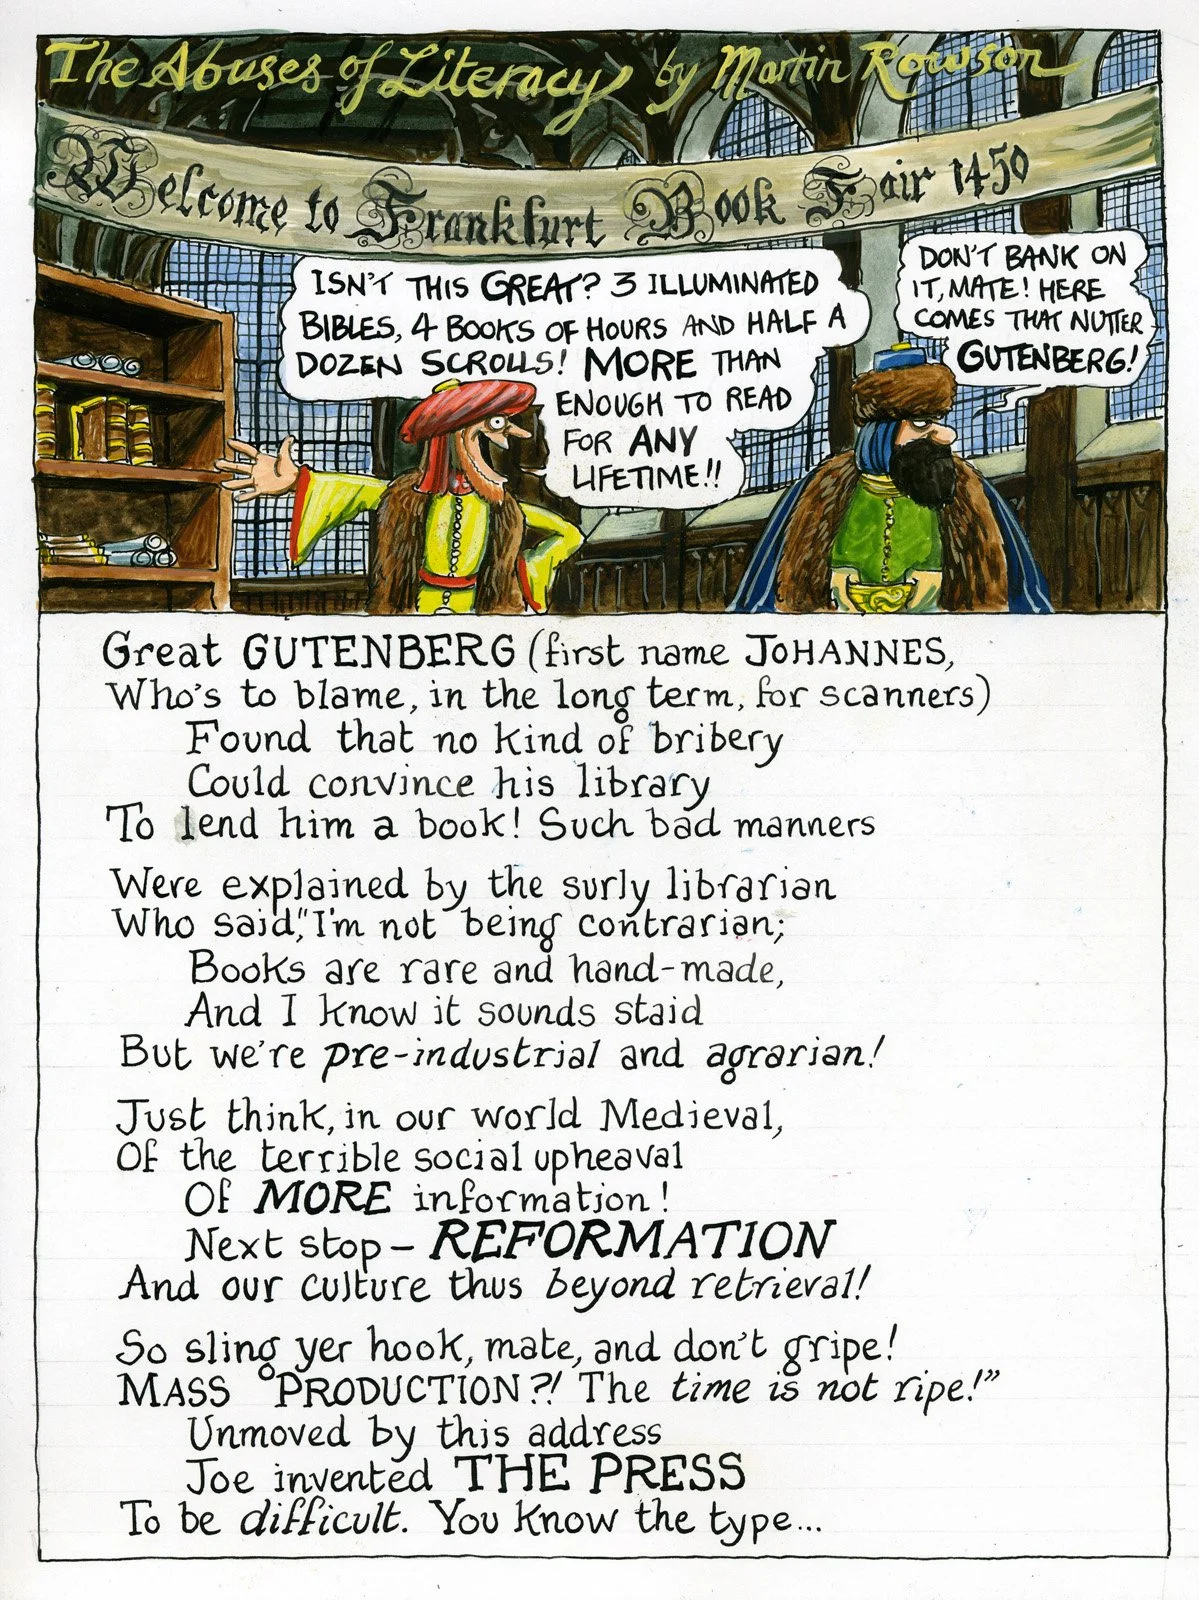 The Abuses of Literacy by Martin Rowson
Welcome to Frankfurt Book Fair 1450
ISN'T THIS GREAT? 3 ILLUMINATED
BIBLES, 4 BOOKS OF HOURS AND HALF A
DOZEN SCROLLS! MORE THAN
ENOUGH TO READ
FOR ANY
LIFETIME!!
DON'T BANK ON
IT, MATE! HERE
COMES THAT NUTTER
GUTENBERG!
Great GUTENBERG (first name JOHANNES,
Who's to blame, in the long term, for scanners)
Found that no kind of bribery
Could convince his library
To lend him a book! Such bad manners
Were explained by the surly librarian
Who said, "I'm not being contrarian;
Books are rare and hand-made,
And I know it sounds staid
But we're pre-industrial and agrarian!
Just think, in our world Medieval,
Of the terrible social upheaval
Of MORE information!
Next stop – REFORMATION
And our culture thus beyond retrieval!
So sling yer hook, mate, and don't gripe!
MASS PRODUCTION?! The time is not ripe!"
Unmoved by this address
Joe invented THE PRESS
To be difficult. You know the type...